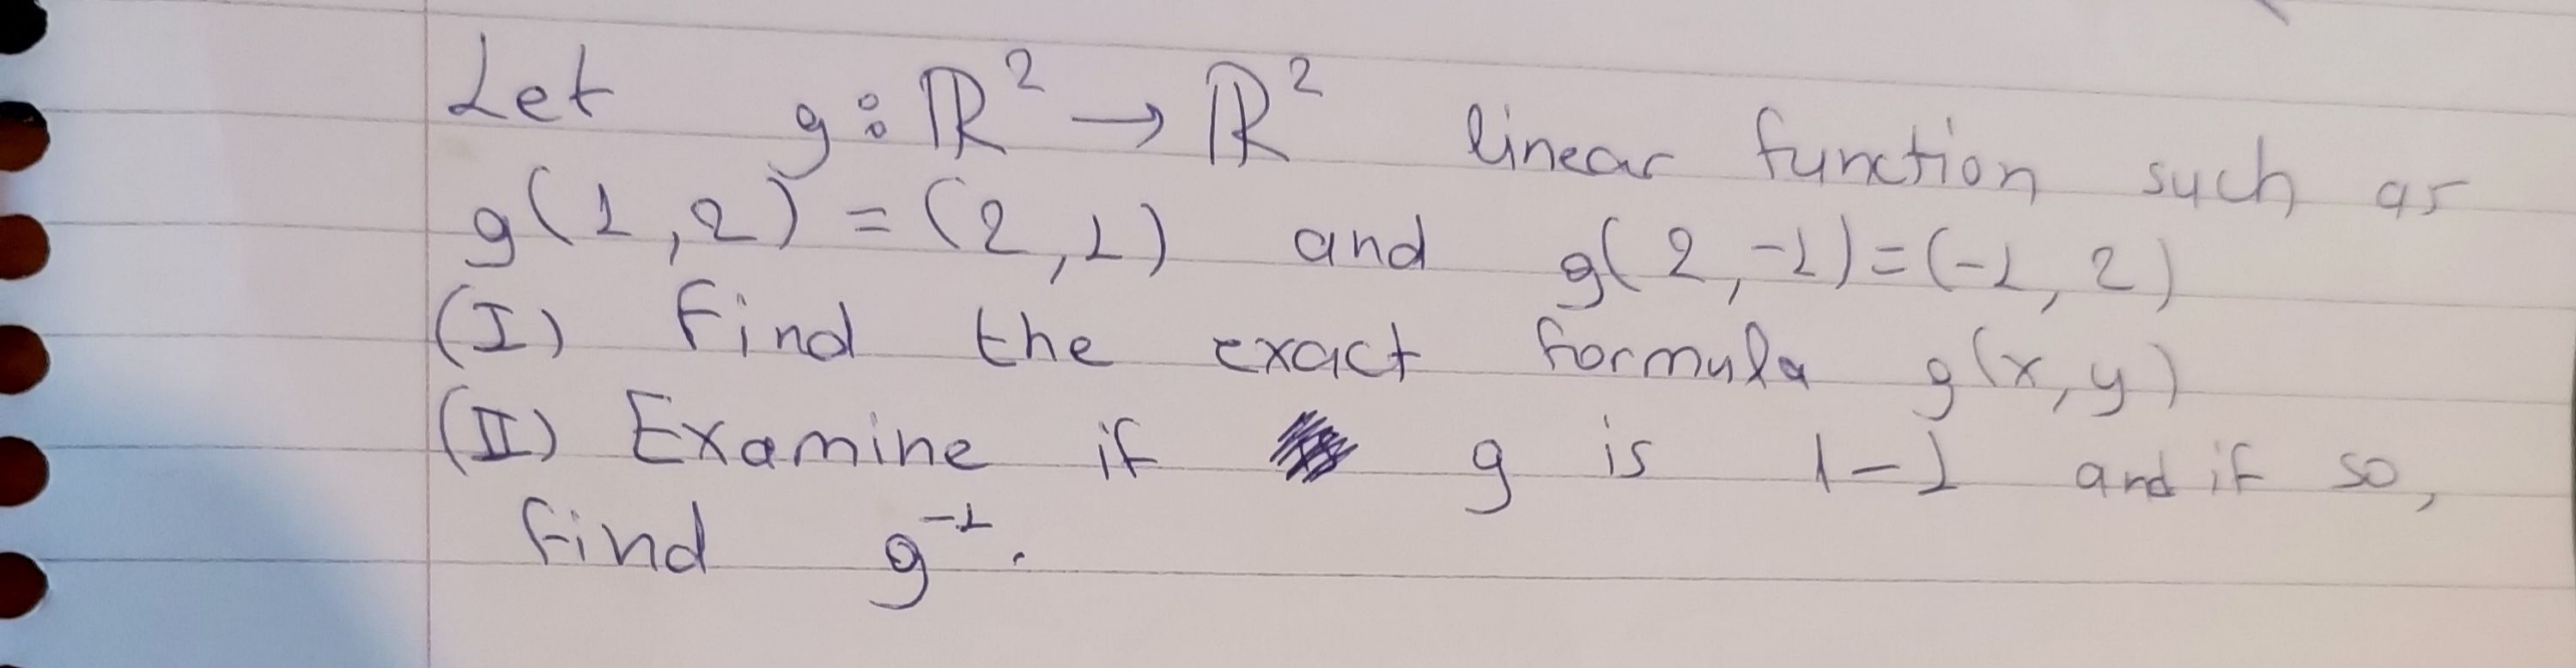 Let g: ℝ² → ℝ² linear function such as
g(1,2) = (2,1) and g(2,-1)=(-1,2)
(I) Find the exact formula g(x,y)
(II) Examine if g is 1-1 and if so,
find g⁻¹.